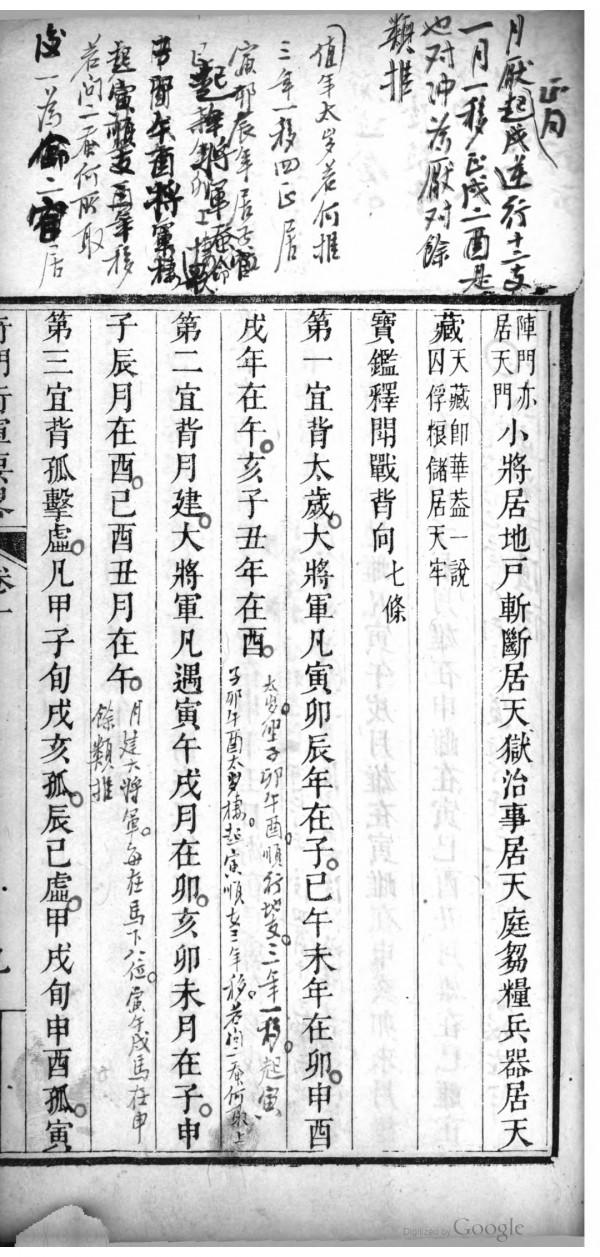 正月
月厭起戌逆行十二支
一月一移正戌二酉是
也对冲為厭对餘
類推
值年太岁若何推
三年一移四正居
寅卯辰年居子宮
起寅順支三年移
若问二春何所取
陣門亦居天門小將居地戸斬斷居天獄治事居天庭芻糧兵器居天
藏天藏卽華葢一說囚俘粮儲居天牢
寶鑑釋開戰背向七條
第一宜背太歲大將軍凡寅卯辰年在子巳午未年在卯申酉
戌年在午亥子丑年在酉
太岁座子卯午酉順行地支三年一移起寅
子卯午酉太岁棲起寅順支三年移若问二春何取上
第二宜背月建大將軍凡遇寅午戌月在卯亥卯未月在子申
子辰月在酉巳酉丑月在午
月建大將軍每在馬下八位寅午戌馬在申
餘類推
第三宜背孤擊虛凡甲子旬戌亥孤辰巳虛甲戌旬申酉孤寅
卷一
Digitized by Google